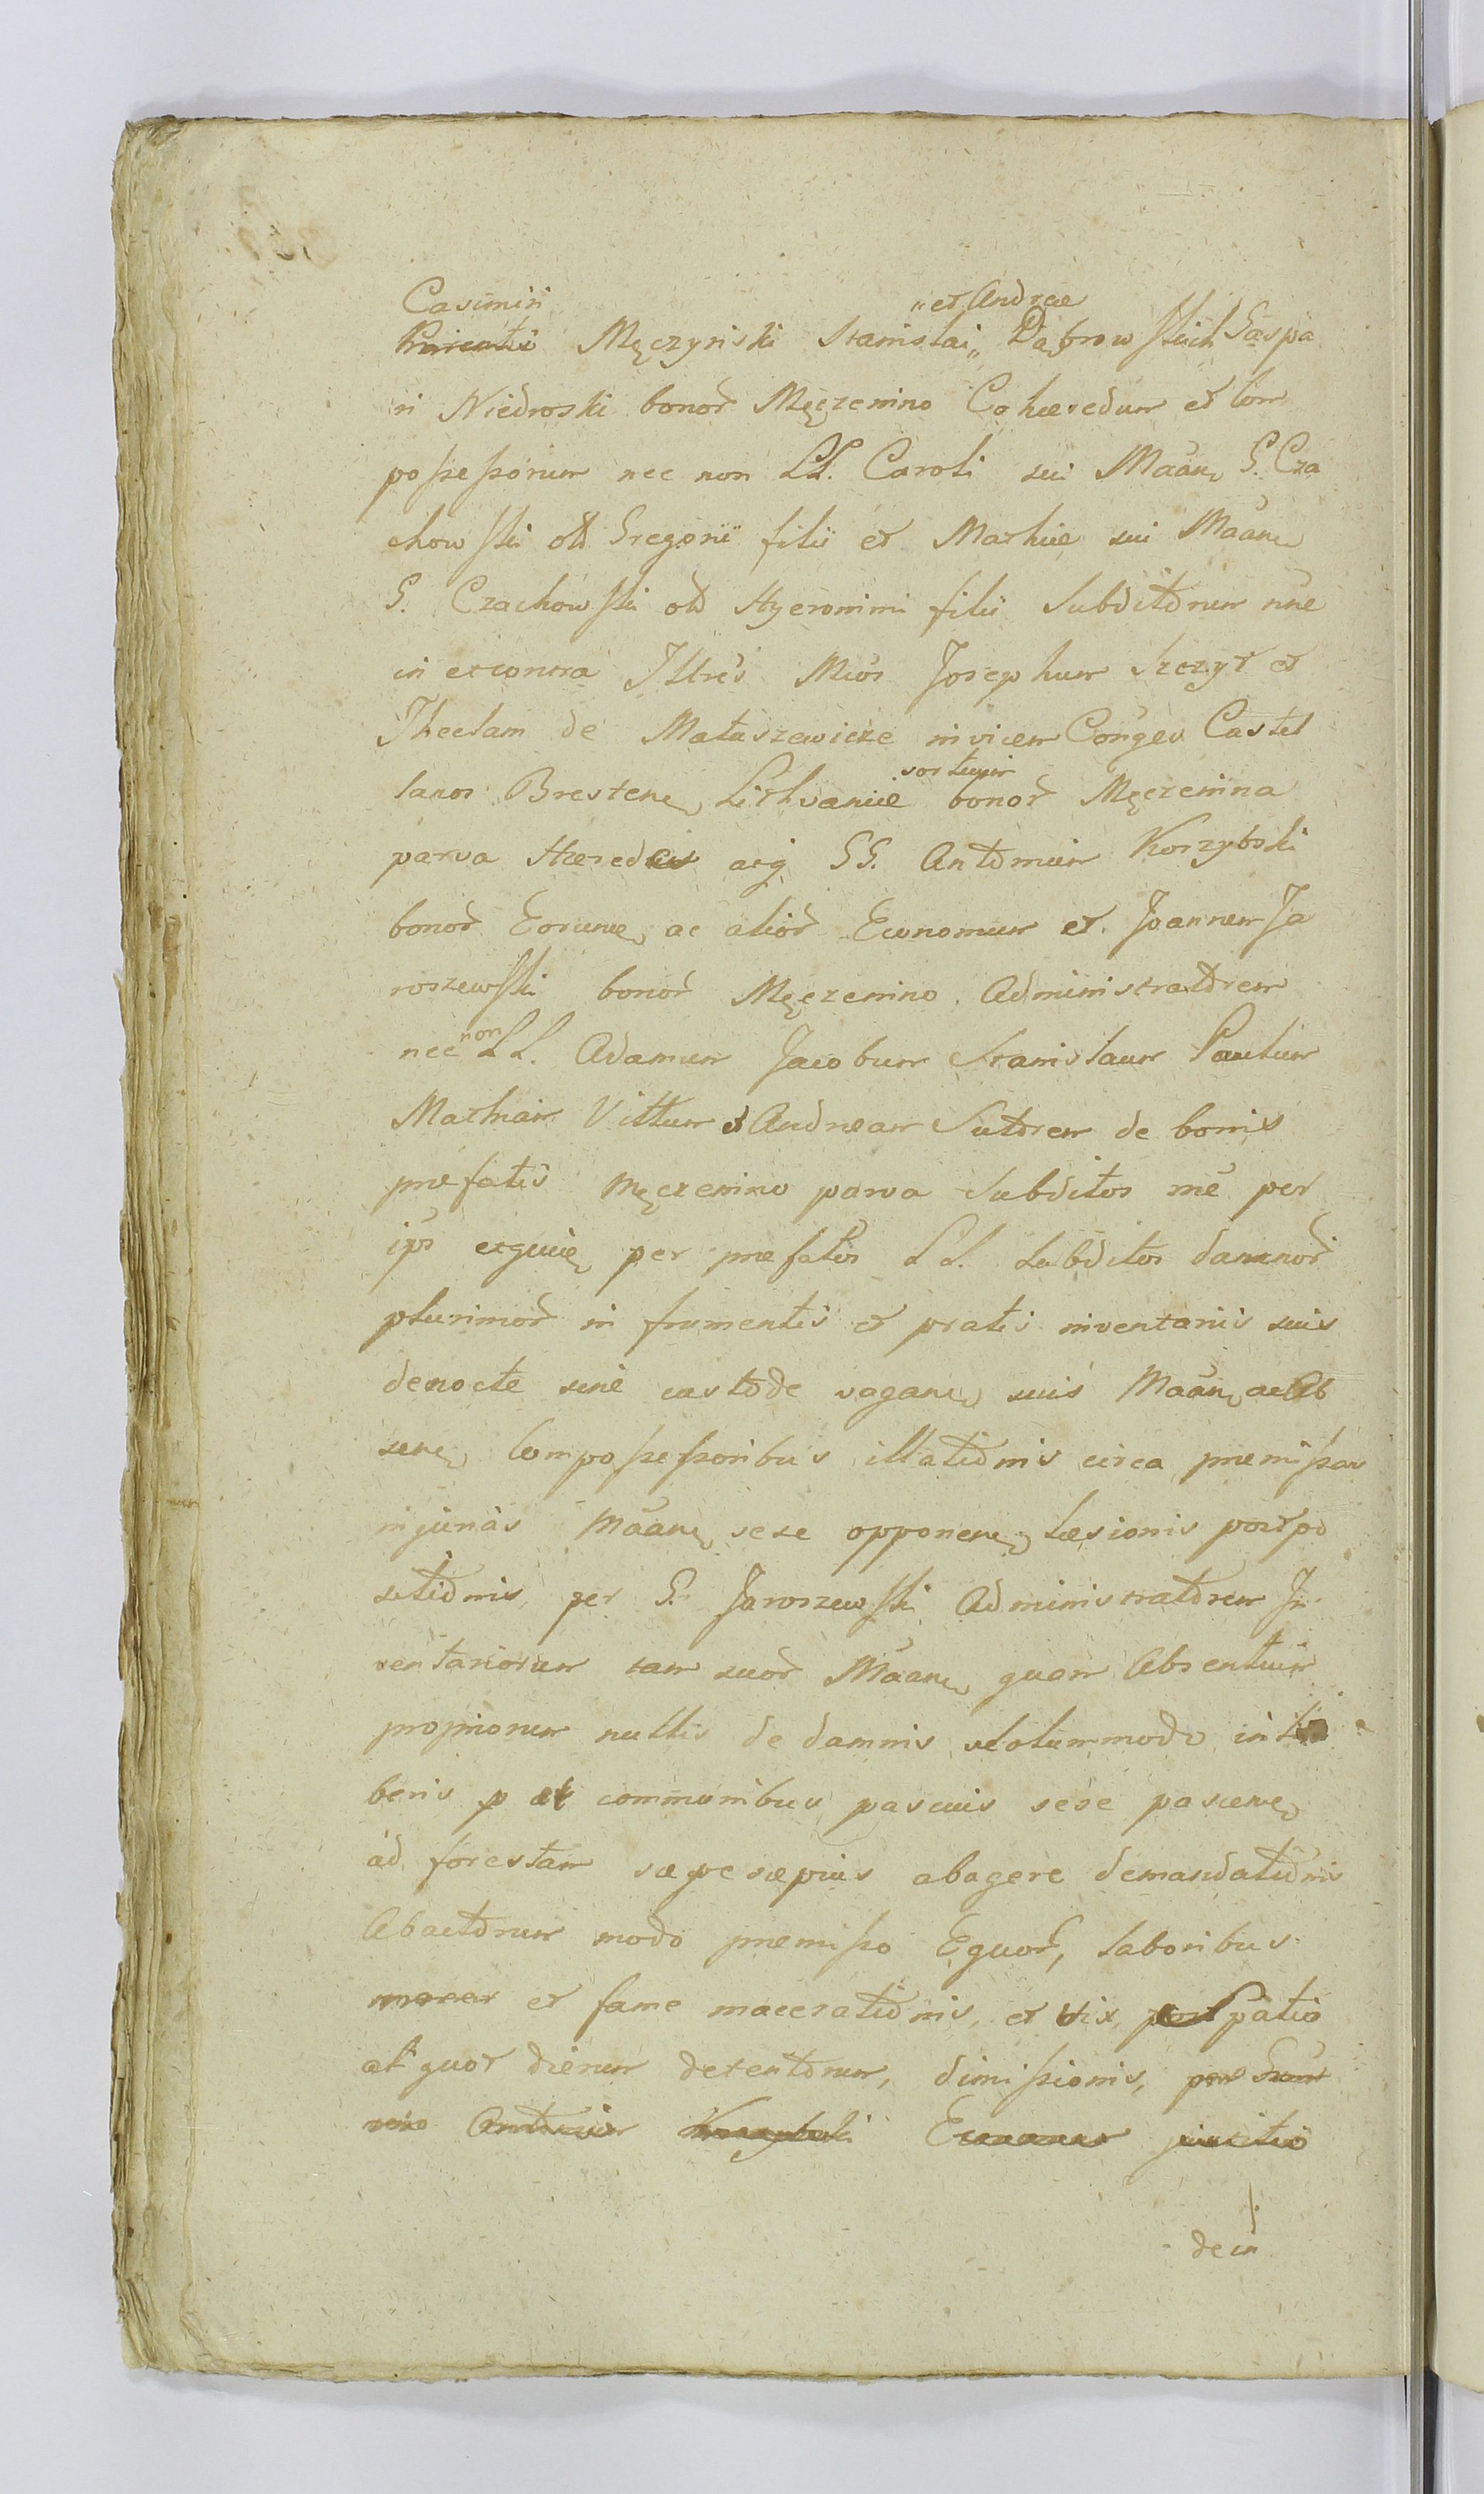 Casimiri „et Andreæ
Męczyński Stanislai „ Dąbrowskich Gaspa
ri Niedroski bonor Męczenino Cohæredum et Com
possessorum nec non LL. Caroli sui Maän G. Cza
chowski olt Gregorii filii et Mathiæ sui Maän
G. Czachowski olt Hyeronimi filii Subditorum nne
in etcontra Illres Mcos Josephum Szczyt et
Theclam de Matuszewicze invicem Conges Castel
sortium
lanos Brestens Lithvaniæ bonor Męczenina
parva Hæredes acq GG. Antonium Korzybski
bonor ac alior Economum et Joannem Ja
roszewski bonor Męczenino Administratorem
nec non LL. Adamum Jacobum Stanislaum Paulum
Mathiam Vittum et Andream Sutorem de bonis
præfatis Męczenino parva Subditos rne per
ips per præfatos LL. Subditos damnor
plurimor in frumentis et pratis inventariis suis
denocte sine custode vagan suis Maän ac Ab
sen Compossessoribus illationis circa præmissas
injurias Maän sese opponen læsionis postpo
sitionis per G. Jaroszewski Administratorem In
ventariorum tam suor Maän quam Absentium
propriorum nullis de damnis solummodo in li
beris communibus pascuis sese pascen
ad forestam sæpesæpius abagere demandationis
Abactorum modo præmisso Equor, laboribus
et fame macerationis, et vix, post spatio
aliquot dierum detentorum, dimissionis, præ
Antonium Korzybski Economum
dein